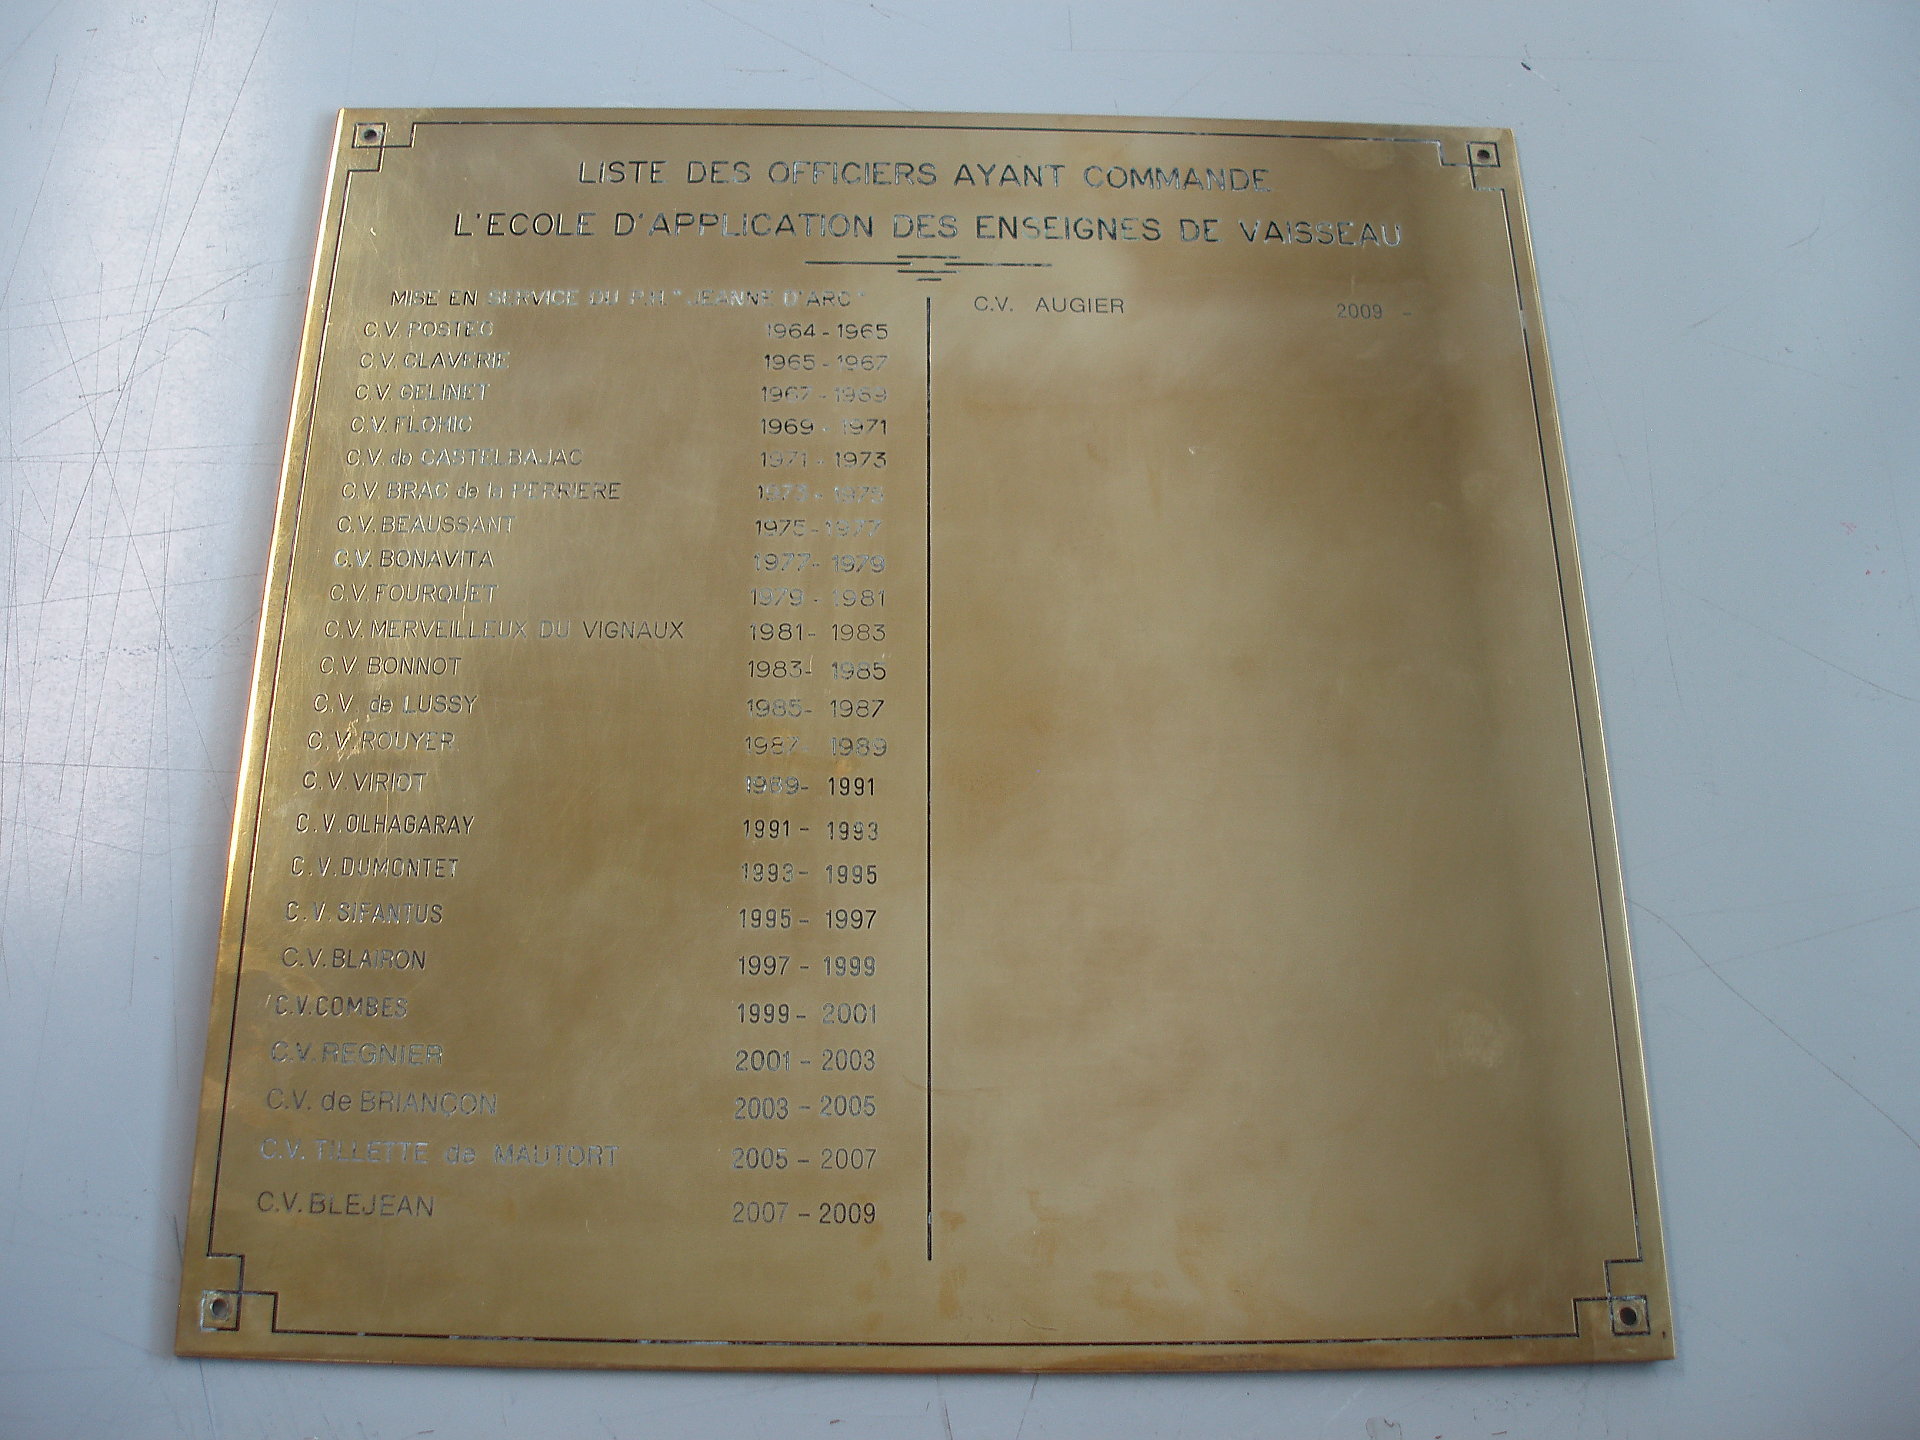 LISTE DES OFFICIERS AYANT COMMANDE
L'ECOLE D'APPLICATION DES ENSEIGNES DE VAISSEAU
MISE EN SERVICE DU P.H. "JEANNE D'ARC"
C.V. POSTEC 1964 - 1965
C.V. CLAVERIE 1965 - 1967
C.V. GELINET 1967 - 1969
C.V. FLOHIC 1969 - 1971
C.V. de CASTELBAJAC 1971 - 1973
C.V. BRAC de la PERRIERE 1973 - 1975
C.V. BEAUSSANT 1975 - 1977
C.V. BONAVITA 1977 - 1979
C.V. FOURQUET 1979 - 1981
C.V. MERVEILLEUX DU VIGNAUX 1981 - 1983
C.V. BONNOT 1983 - 1985
C.V. de LUSSY 1985 - 1987
C.V. ROUYER 1987 - 1989
C.V. VIRIOT 1989 - 1991
C.V. OLHAGARAY 1991 - 1993
C.V. DUMONTET 1993 - 1995
C.V. SIFANTUS 1995 - 1997
C.V. BLAIRON 1997 - 1999
C.V. COMBES 1999 - 2001
C.V. REGNIER 2001 - 2003
C.V. de BRIANÇON 2003 - 2005
C.V. TILLETTE de MAUTORT 2005 - 2007
C.V. BLEJEAN 2007 - 2009
C.V. AUGIER 2009 -